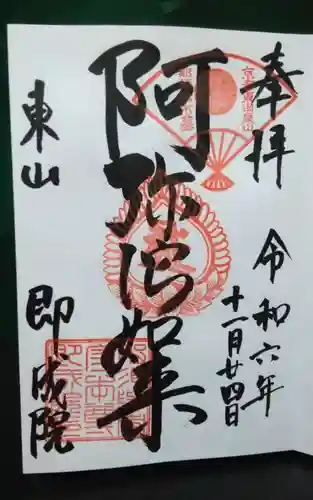 奉拝
令和六年
十一月廿四日
阿弥陀如来
東山
即成院